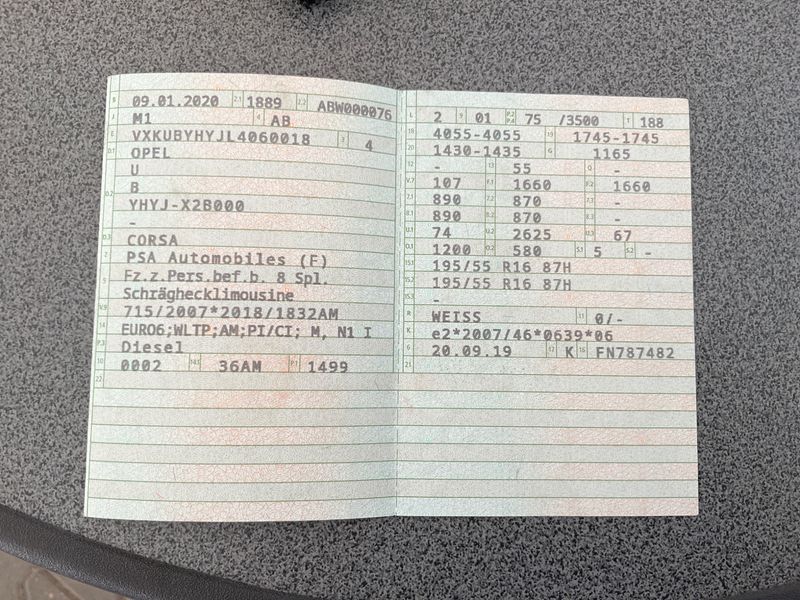 B 09.01.2020 2.1 1889 2.2 ABW000076
J M1 4 AB
E VXKUBYHYJL4060018 3 4
D.1 OPEL
U
D.2 B
YHYJ-X2B000
-
D.3 CORSA
2 PSA Automobiles (F)
5 Fz.z.Pers.bef.b. 8 Spl.
Schräghecklimousine
V.9 715/2007*2018/1832AM
14 EURO6;WLTP;AM;PI/CI; M, N1 I
P.3 Diesel
10 0002 14.1 36AM P.1 1499
22
L 2 9 01 P.2 P.4 75 /3500 T 188
18 4055-4055 19 1745-1745
20 1430-1435 G 1165
12 - 13 55 Q -
V.7 107 F.1 1660 F.2 1660
7.1 890 7.2 870 7.3 -
8.1 890 8.2 870 8.3 -
U.1 74 U.2 2625 U.3 67
O.1 1200 O.2 580 S.1 5 S.2 -
15.1 195/55 R16 87H
15.2 195/55 R16 87H
15.3 -
R WEISS 11 0/-
K e2*2007/46*0639*06
6 20.09.19 17 K 16 FN787482
21